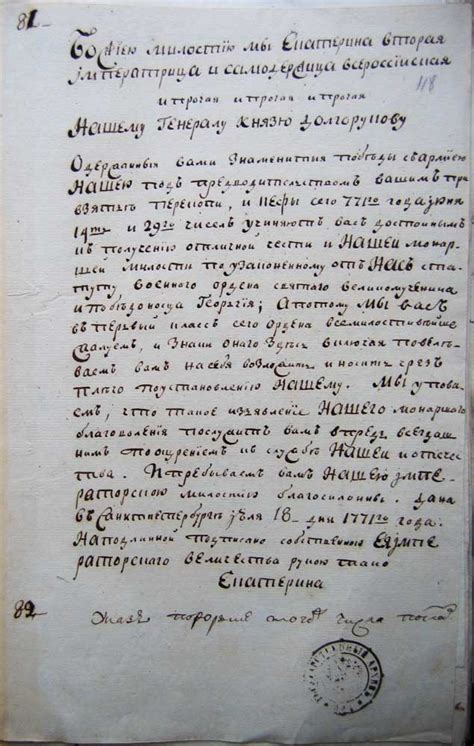 81
Божіею милостію мы Екатерина вторая
імператрица и самодержица всеросіиская
118
и прочая и прочая и прочая
Нашему Генералу Князю Долгорукову
Одержанныя вами знаменитыя победы сармиею
Нашею подъ предводителствомъ вашимъ при
взятьѣ перекопи, и кефы сего 771го года июня
14го и 29го чиселъ учиняютъ васъ достойнымъ
къ полученію отличной чести и Нашей монар
шей милости по узаконенному отъ Насъ ста
туту военного ордена святаго великомученика
и победоносца Георгія; А потому мы васъ
въ первый классъ сего ордена всемилостивѣйше
жалуемъ, и знаки онаго здѣсь включая повеле
ваемъ вамъ на себя возложить и носить чрезъ
плечо по установленію Нашему. Мы упова
емъ, что такое изъявленіе Нашего монаршаго
благоволения послужитъ вамъ впредь всегдаш
нимъ поощрениемъ къ службѣ Нашей и отече
ства. И пребываемъ вамъ Нашею імпе
раторскою милостію благосклонны. дана
въ Санктпетербургѣ іюля 18 дни 1771го года.
На подлинной подписано собственною Ея імпе
раторскаго величества рукою тако
Екатерина
82
числа